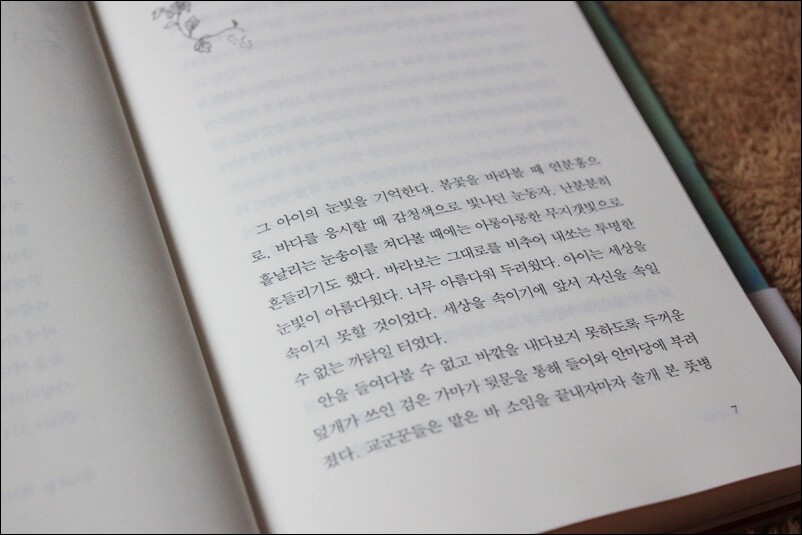 그 아이의 눈빛을 기억한다. 봄꽃을 바라볼 때 연분홍으
로, 바다를 응시할 때 감청색으로 빛나던 눈동자. 난분분히
흩날리는 눈송이를 쳐다볼 때에는 아롱아롱한 무지갯빛으로
흔들리기도 했다. 바라보는 그대로를 비추어 내쏘는 투명한
눈빛이 아름다웠다. 너무 아름다워 두려웠다. 아이는 세상을
속이지 못할 것이었다. 세상을 속이기에 앞서 자신을 속일
수 없는 까닭일 터였다.
안을 들여다볼 수 없고 바깥을 내다보지 못하도록 두꺼운
덮개가 쓰인 검은 가마가 뒷문을 통해 들어와 안마당에 부려
졌다. 교군꾼들은 맡은 바 소임을 끝내자마자 솔개 본 풋병
7